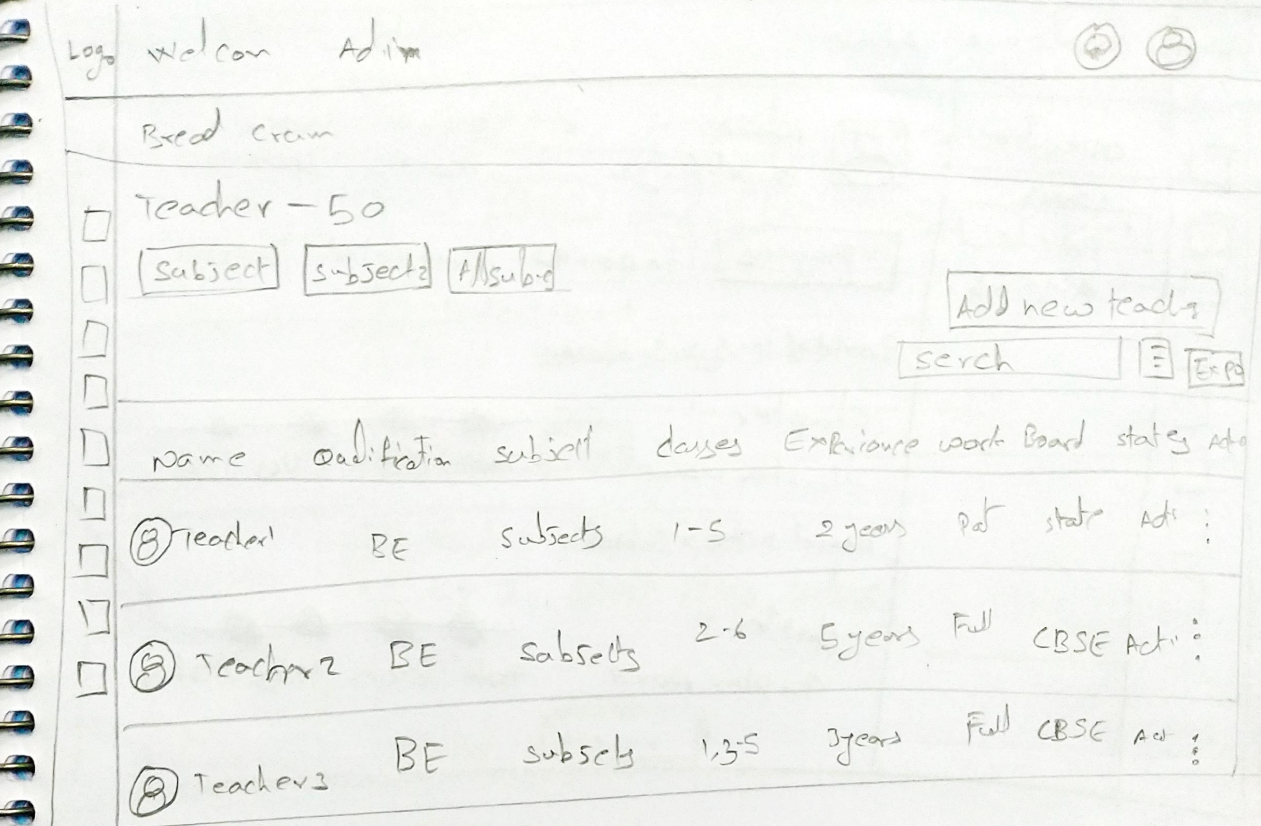 Logo Welcom Adim
Bread Cram
Teacher - 50
Subject Subject2 All Sub
Add new teach
serch Expo
Name Qualification subject classes Experience work Board states Actio
Teacher1 BE Subjects 1-5 2 years Pat state Acti
Teacher2 BE Subsects 2-6 5 years Full CBSE Acti
Teacher3 BE subsects 1,3-5 3 years Full CBSE Act